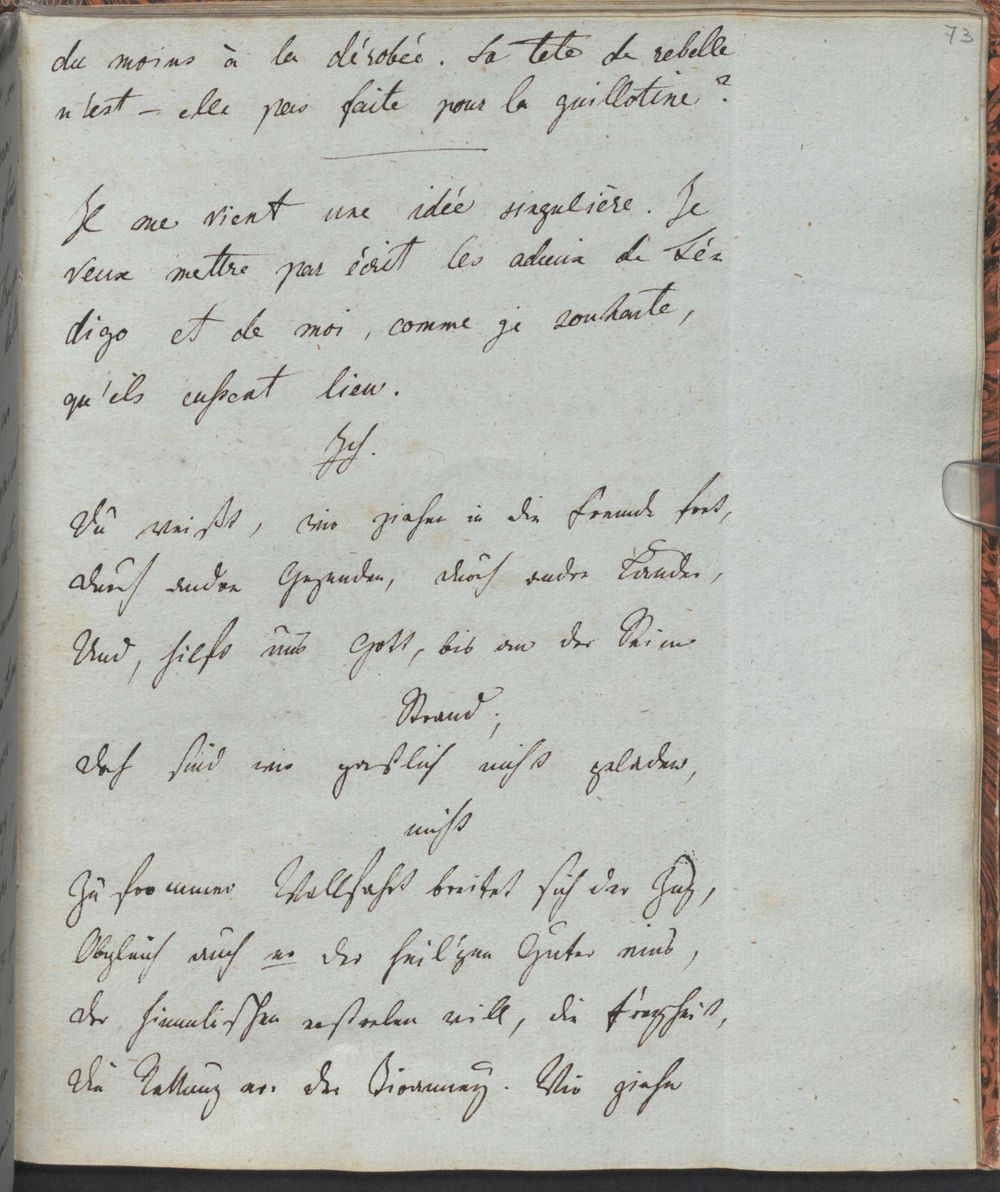 73
du moins à la dérobée. Sa tete de rebelle
n'est-elle pas faite pour la guillotine?
Il me vient une idée singulière. Je
veux mettre par écrit les adieux de
digo et de moi, comme je souhaite,
qu'ils eussent lieu.
Ich.
Du weißt, wir ziehen in die Fremde fort,
durch andre Gegenden, durch andre Länder,
Und, hilft uns Gott, bis an der Seine
Strand;
doch sind wir gastlich nicht geladen,
nicht
Zu frommer Wallfahrt breitet sich der Zug,
Obgleich auch er der heil'gen Güter eins,
der himmlischen erstreben will, die Freyheit,
die Rettung vor der Tirанney. Wir ziehn